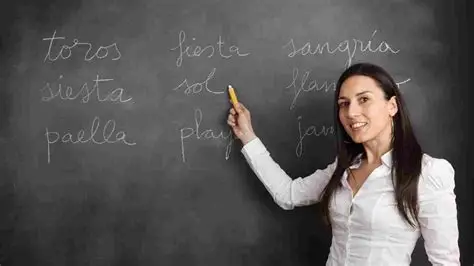 toros fiesta sangría
siesta sol flam
paella play jam